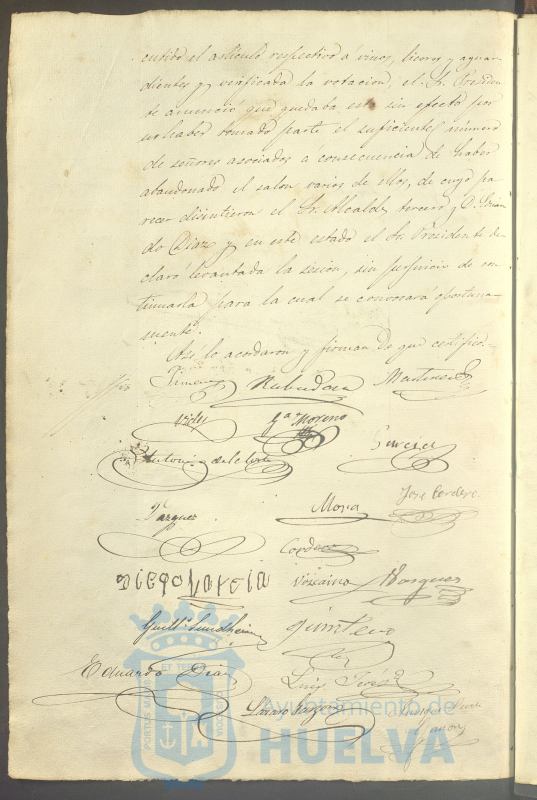 cutido el artículo respectivo á vinos, licores y aguar-
dientes y verificada la votacion, el Sr. Presiden
te anunció que quedaba esta sin efecto por
no haber tomado parte el suficiente número
de señores asociados á consecuencia de haber
abandonado el salon varios de ellos, de cuyo pa
recer disintieron el Sr. Alcalde tercero y D.
do Diaz y en este estado el Sr. Presidente de-
claró levantada la sesion, sin perjuicio de con
tinuarla para la cual se convocará oportuna-
mente.
Así lo acordaron y firman de que certifico.
Jimenez Martinez
Gª Moreno
Garcia
Antonio de la Corte
Vazquez Mora José Cordero
Cordero
DIEGO GARCIA Vizcaino Vazquez
Guillº Sundheim Quintero
Eduardo Diaz Luis
Lázaro
PORTUS MARIS ET TERRAE CUSTODIA
Ayuntamiento de
HUELVA